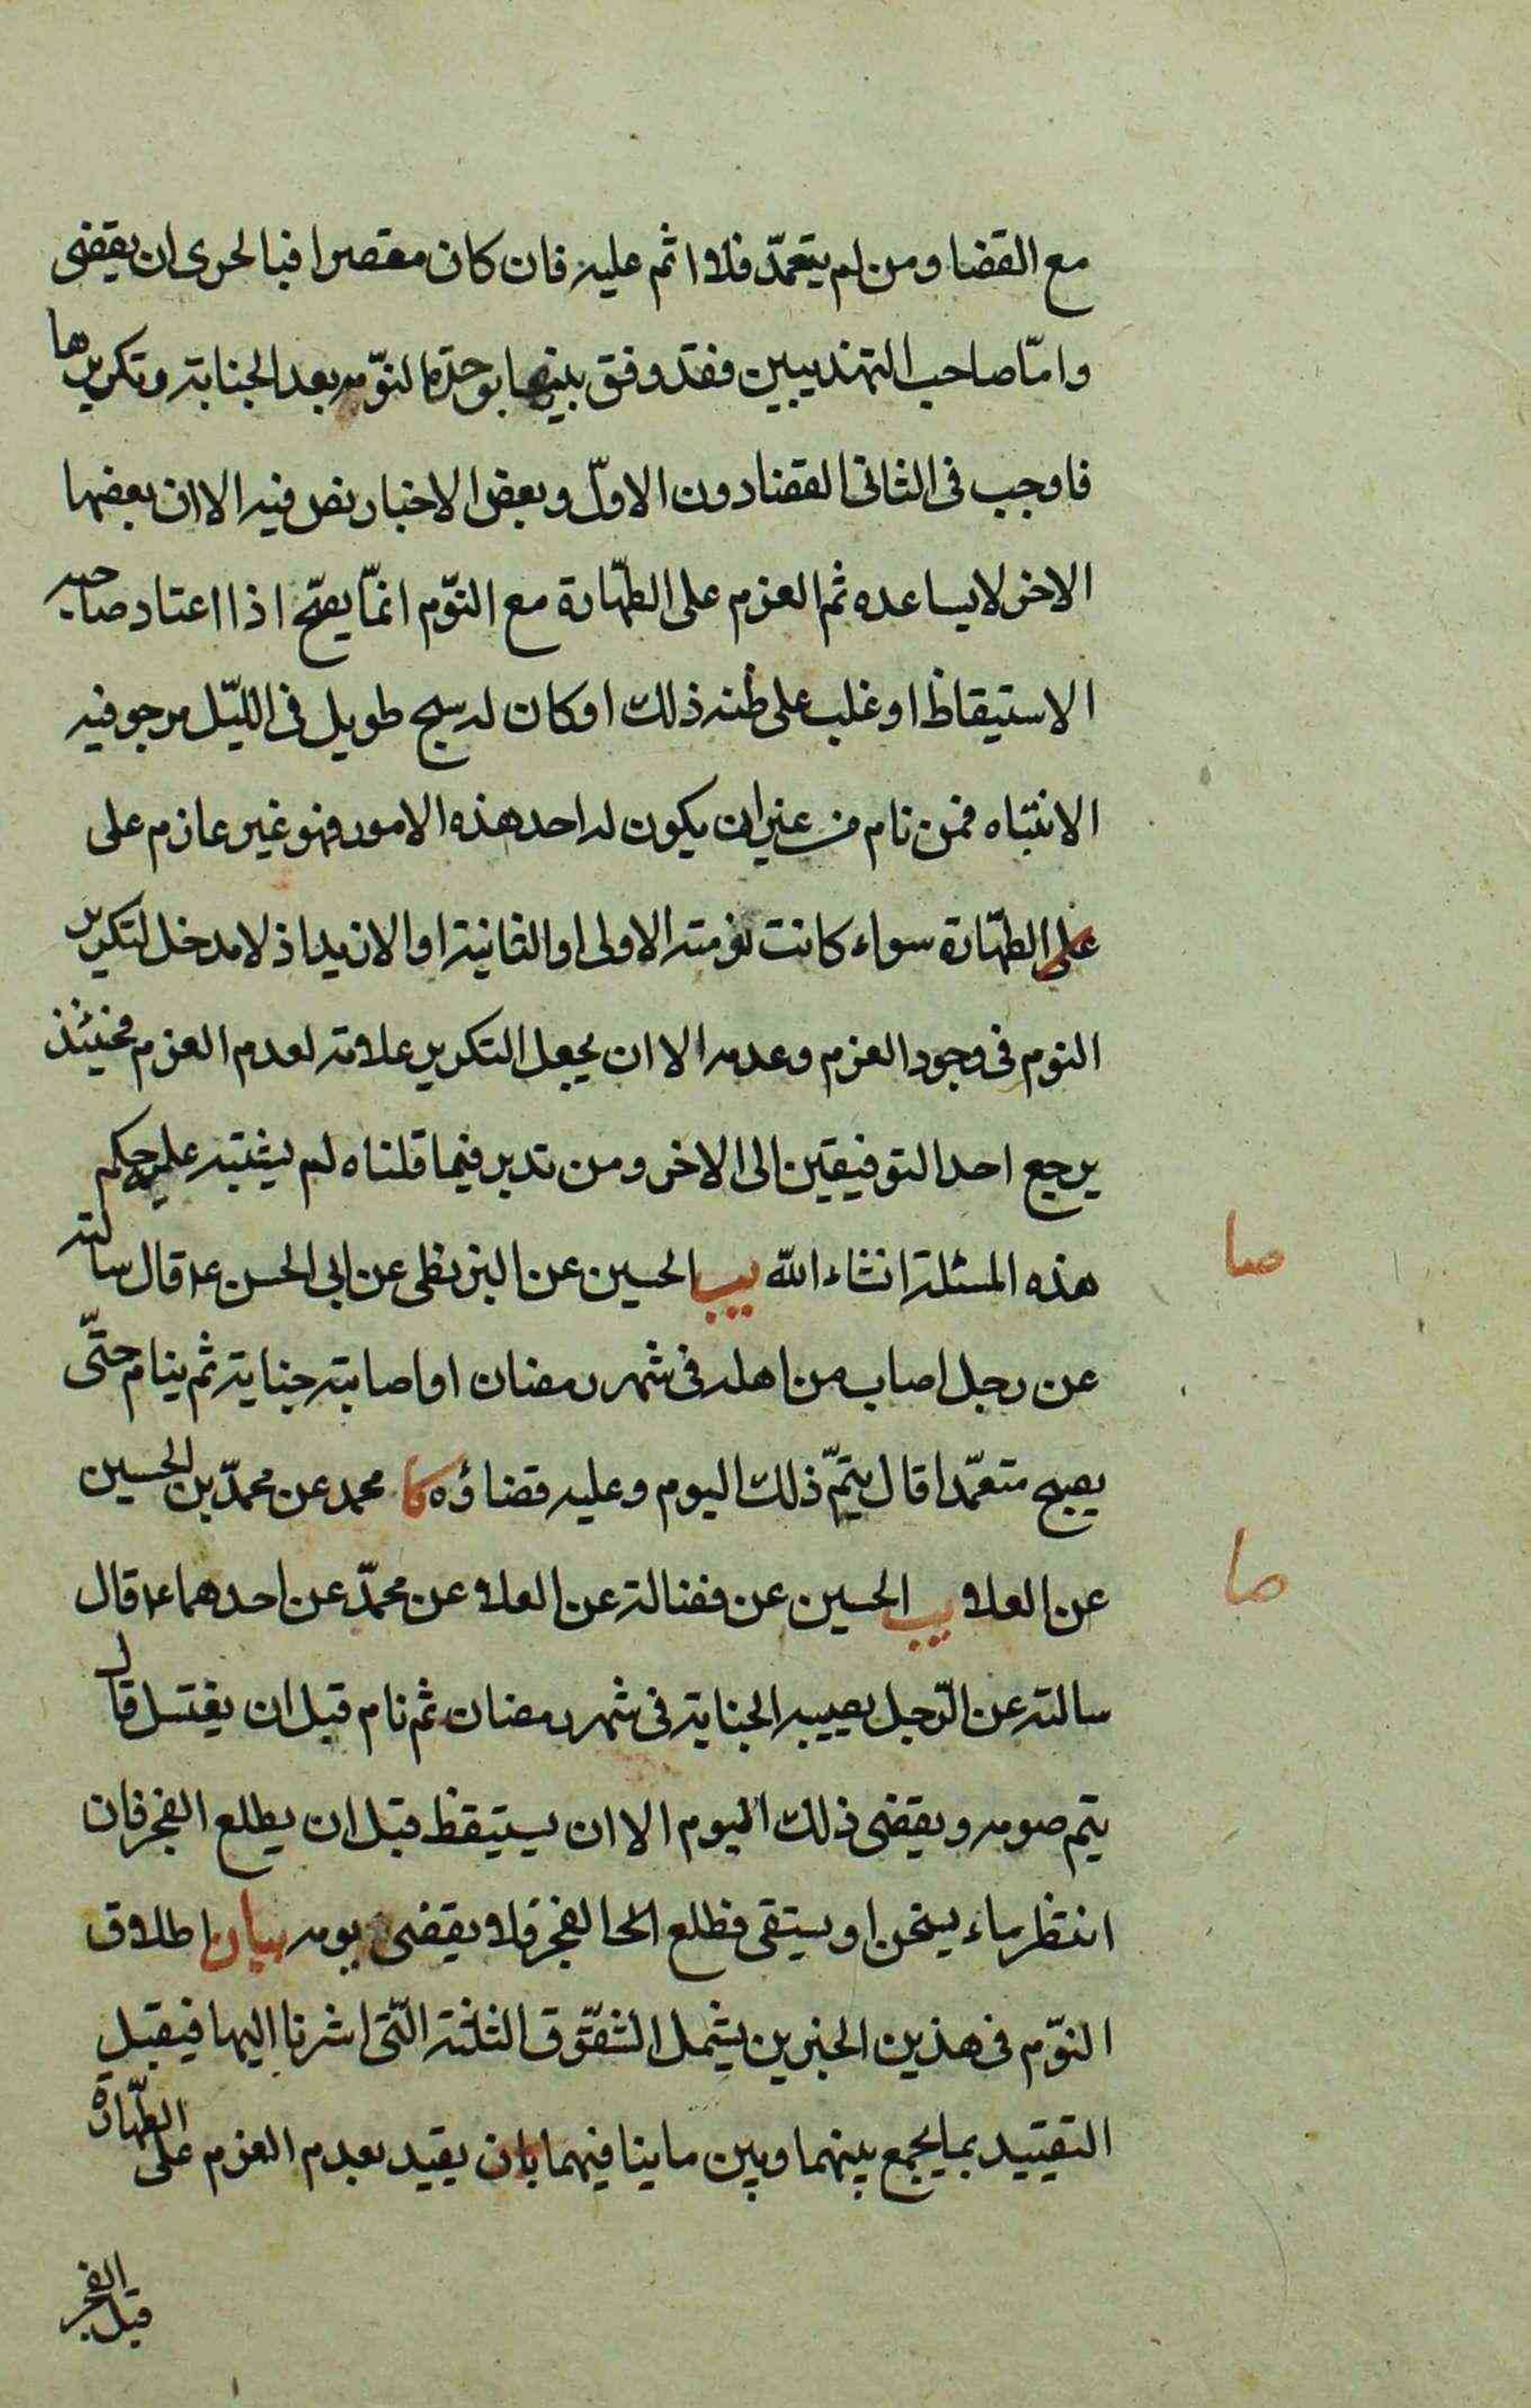 مع القضا ومن لم يتعمّد فلا اثم عليه فان كان مقصرا فبالحرى ان يقضى
وامّا صاحب التهذيبين ففقد وفق بينها بوحدة النوّمه بعد الجنابة وتكريرها
فاوجب فى الثانى القضا دون الاوّل وبعض الاخبار نص فيه الا ان بعضها
الاخر لا يساعده ثم العزم على الطهّارة مع النوّم انمّا يصحّ اذا اعتاد صاحبه
الاستيقاظ او غلب على ظنه ذلك او كان له سبح طويل فى الليّل يرجو فيه
الانتباه فمن نام من غير ان يكون له احد هذه الامور فهو غير عازم على
على الطهّارة سواء كانت نومته الاولى او الثانية او الازيد اذ لا مدخل لتكرير
النوم فى وجود العزم وعدمه الا ان يجعل التكرير علامة لعدم العزم فحينئذ
يرجع احد التوفيقين الى الاخر ومن تدبر فيما قلناه لم يشتبه عليه حكم
هذه المسئلة انشاء الله يب الحسين عن البزنطى عن ابى الحسن ع قال سالته
صا
عن رجل اصاب من اهله فى شهر رمضان او اصابته جنابة ثم ينام حتّى
يصبح متعمّدا قال يتمّ ذلك اليوم وعليه قضاؤه كا محمد عن محمدّ بن الحسين
عن العلا يب الحسين عن فضالة عن العلا عن محمدّ عن احدهما ع قال
صا
سالته عن الرّجل يصيبه الجنابة فى شهر رمضان ثم نام قبل ان يغتسل قال
يتم صومه ويقضى ذلك اليوم الا ان يستيقظ قبل ان يطلع الفجر فان
انتظر ماء يسخن او يستقى فطلع الفجر فلا يقضى يومه بيان اطلاق
النوّم فى هذين الخبرين يشمل الشقوّق الثلثة التّى اشرنا اليها فيقبل
التقييد بما يجمع بينهما وبين ما ينافيهما بان يقيد بعدم العزم على الطهّارة
قبل الفجر